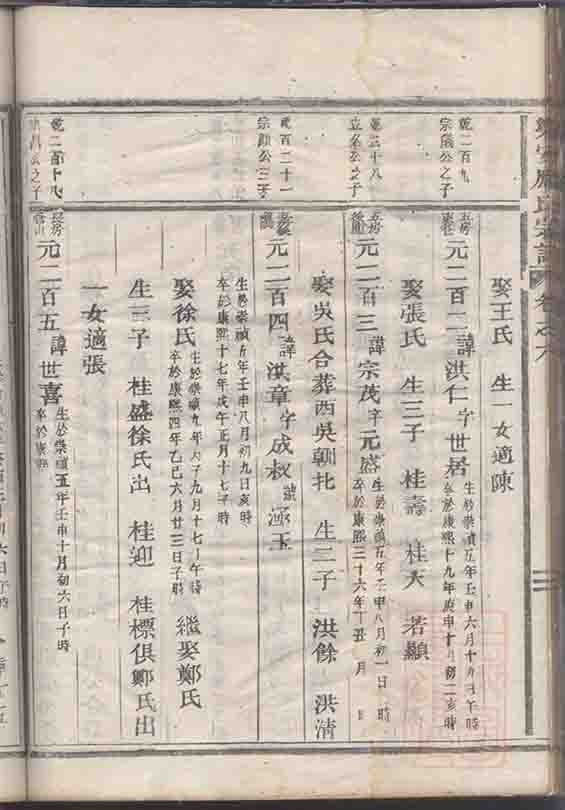 氏宗譜 卷之六
娶王氏 生一女適陳
乾二百九
宗儀公之子
元二百二 諱洪仁 字世居
生於崇禎五年壬申六月十 日午時
卒於康熙十九年庚申十月初二亥時
娶張氏 生三子 桂壽 桂天 若顯
乾三十八
立 公之子
元二百三 諱宗茂 字元盛
生於崇禎五年壬申八月初一日 時
卒於康熙三十六年丁丑 月 日
娶吳氏合葬西吳朝 生二子 洪餘 洪清
乾百二十一
宗顯公三子
元二百四 諱洪章 字成叔 號涵玉
生於崇禎五年壬申八月初九日亥時
卒於康熙十七年戊午正月十七子時
娶徐氏
生於崇禎九年丙子九月十七日午時
卒於康熙四年乙巳六月廿三日子時
繼娶鄭氏
生三子 桂盛徐氏出 桂迎 桂標俱鄭氏出
一女適張
乾二百十八
公之子
元二百五 諱世喜
生於崇禎五年壬申十月初六日子時
卒於康熙